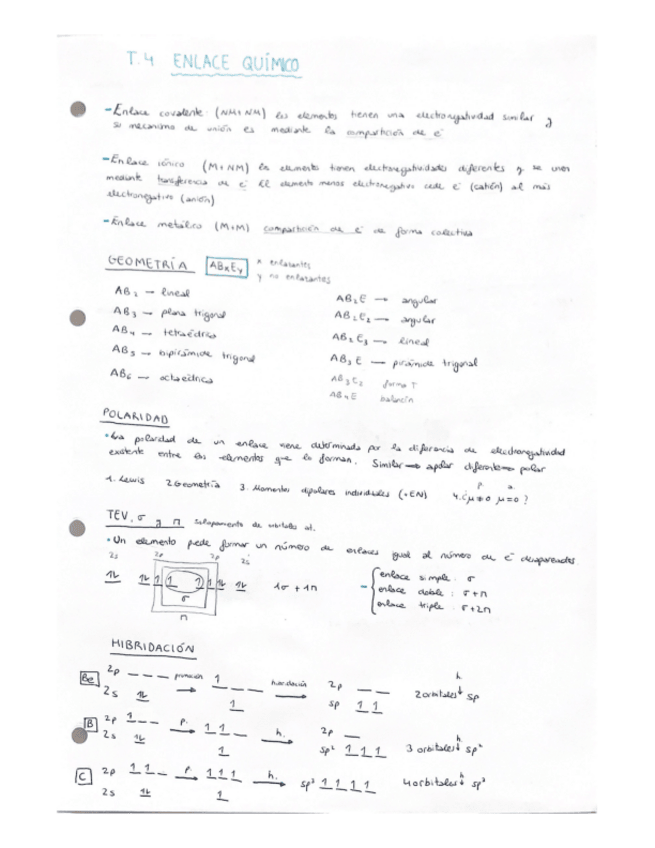 T.4 ENLACE QUÍMICO
- Enlace covalente: (NM+NM) los elementos tienen una electronegatividad similar y
su mecanismo de unión es mediante la compartición de e⁻
- Enlace iónico (M+NM) los elementos tienen electronegatividades diferentes y se unen
mediante transferencia de e⁻ El elemento menos electronegativo cede e⁻ (catión) al más
electronegativo (anión)
- Enlace metálico (M+M) compartición de e⁻ de forma colectiva
GEOMETRÍA ABxEy x enlazantes
y no enlazantes
AB₂ → lineal
AB₃ → plana trigonal
AB₄ → tetraédrica
AB₅ → bipirámide trigonal
AB₆ → octaédrica
AB₂E → angular
AB₂E₂ → angular
AB₂E₃ → lineal
AB₃E → pirámide trigonal
AB₃E₂ forma T
AB₄E balancín
POLARIDAD
• La polaridad de un enlace viene determinada por la diferencia de electronegatividad
existente entre los elementos que lo forman. Similar → apolar diferente → polar
1. Lewis 2. Geometría 3. Momentos dipolares individuales (+EN) 4. ¿μ≠0 μ=0?
p. a.
TEV, σ y π Solapamiento de orbitales at.
• Un elemento puede formar un número de enlaces igual al número de e⁻ desapareados
2s 2p 2p 2s
1↓ 1↓ 1 1 1 1 1↓ 1↓ 1σ + 1π
σ
π
- enlace simple: σ
enlace doble: σ+π
enlace triple: σ+2π
HIBRIDACIÓN
Be 2p _ _ _ promoción 1 _ _ hibridación 2p _ _ 2 orbitales h. sp
2s 1↓ 1 sp 1 1
B 2p 1 _ _ p. 1 1 _ h. 2p _ 3 orbitales h. sp²
2s 1↓ 1 sp² 1 1 1
C 2p 1 1 _ p. 1 1 1 h. sp³ 1 1 1 1 4 orbitales h. sp³
2s 1↓ 1